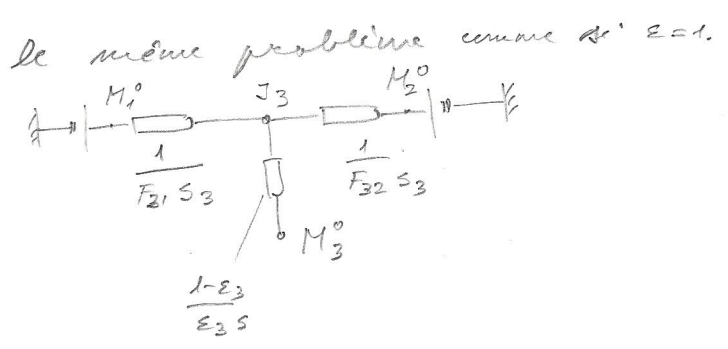 le même problème comme si ε=1.
M₁⁰ J₃ M₂⁰
1/(F₃₁ S₃) 1/(F₃₂ S₃)
M₃⁰
(1-ε₃)/(ε₃ S)